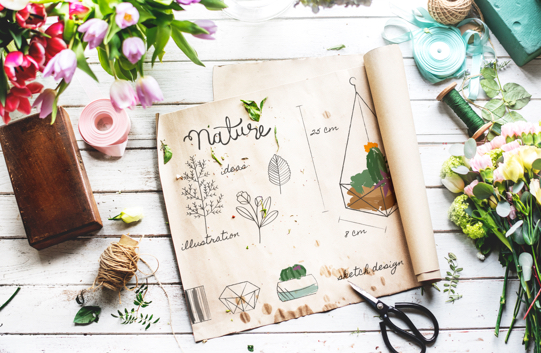 Nature
ideas
25 cm
illustration
8 cm
sketch design